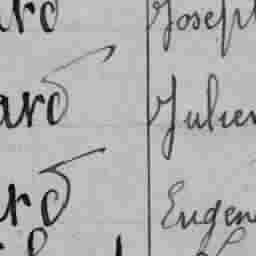 ard Joseph
ard Julien
ard Eugen